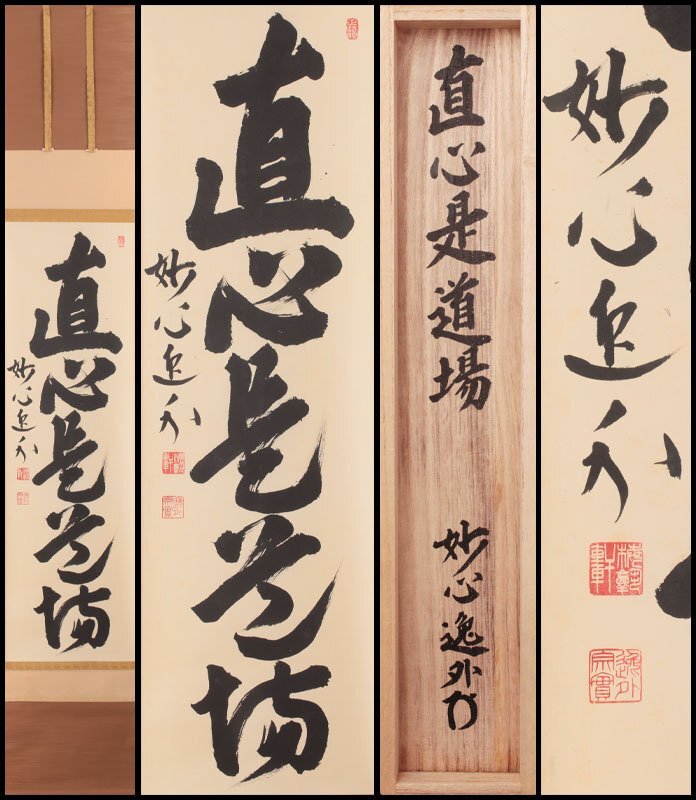 直心是道場
妙心逸外
直心是道場
妙心逸外
直心是道場
妙心逸外
妙心逸外
逸外
宗貫